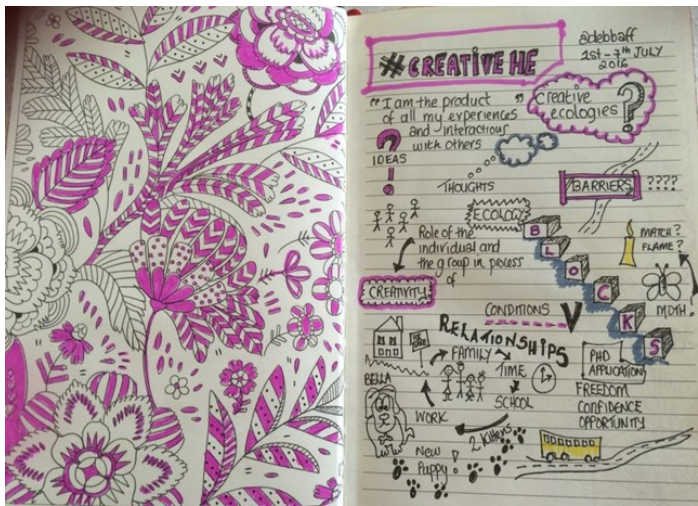 #CREATIVE HE
@debbaff
1st - 7th JULY
2016
"I am the product"
of all my experiences
and interactions
with others
creative
ecologies ?
?
IDEAS
!
THOUGHTS
BARRIERS ????
ECOLOGY
Role of the
individual and
the group in process
of
CREATIVITY
BLOCKS
MATCH?
FLAME?
MOTH?
CONDITIONS
RELATIONSHIPS
FAMILY
TIME
SCHOOL
WORK
BELLA
2 Kittens
New
Puppy!
PHD
APPLICATION
FREEDOM
CONFIDENCE
OPPORTUNITY